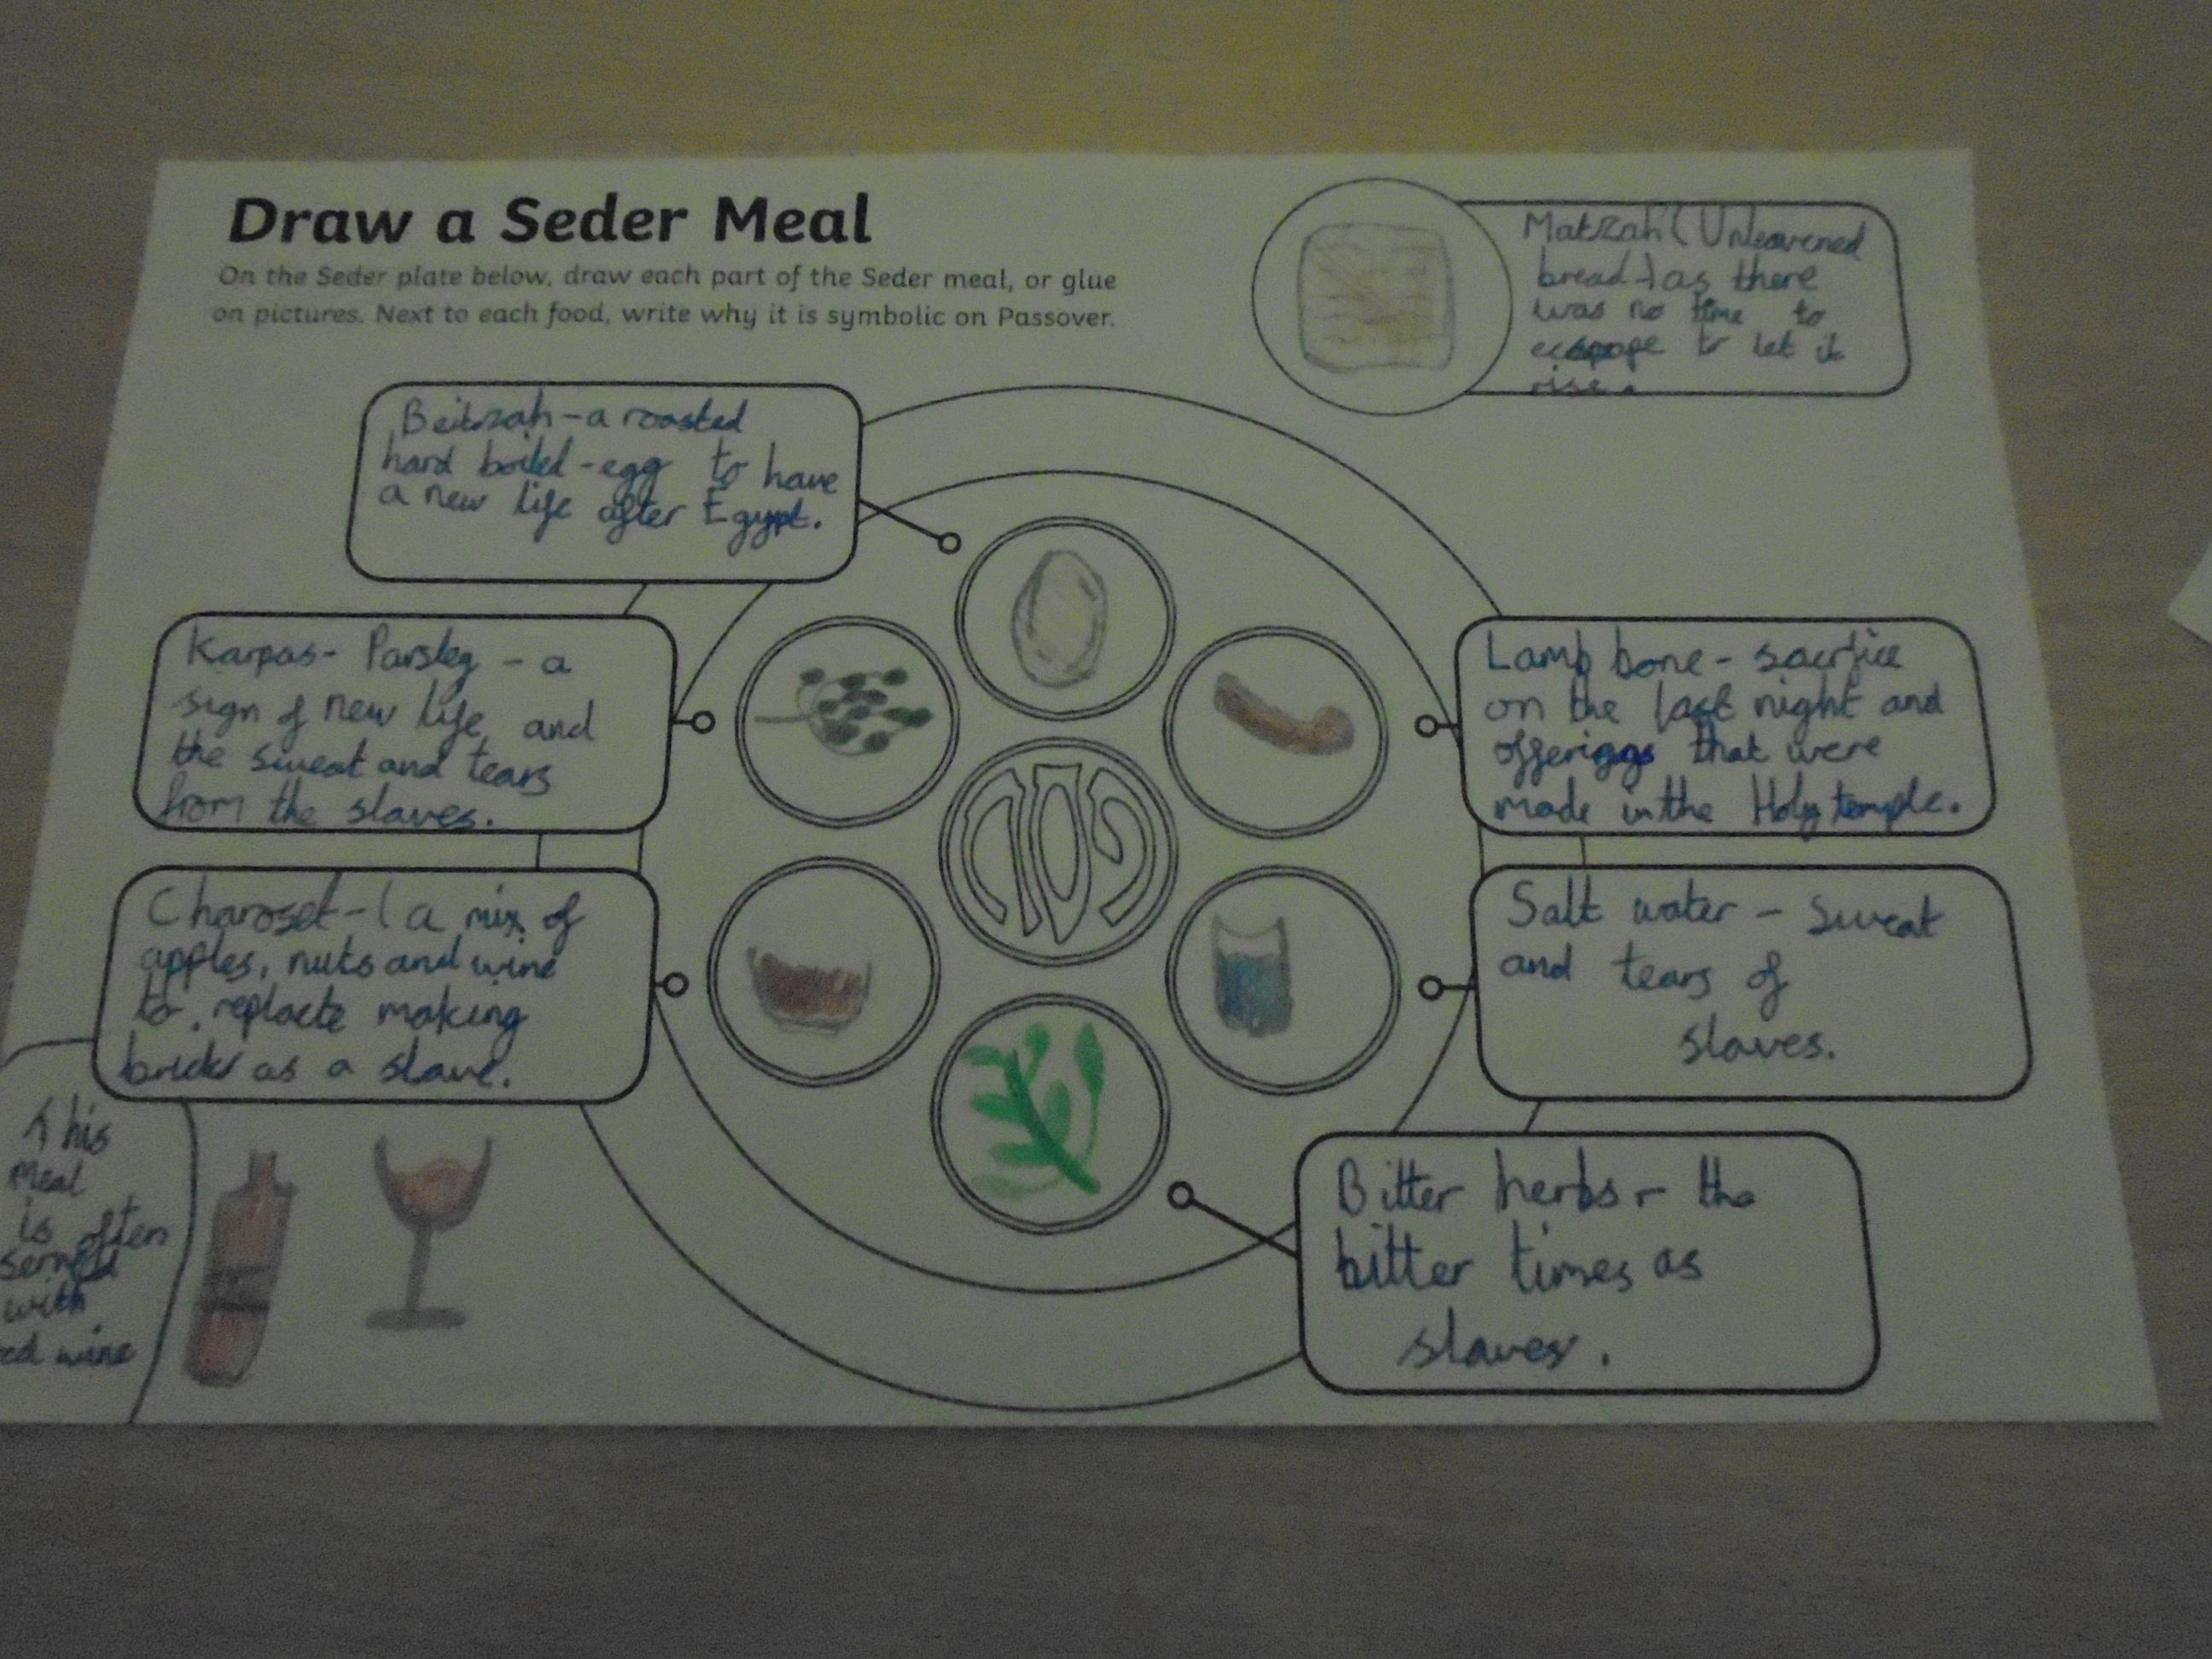 Draw a Seder Meal
On the Seder plate below, draw each part of the Seder meal, or glue
on pictures. Next to each food, write why it is symbolic on Passover.
Matzah (Unleavened
bread-) as there
was no time to
to let it
rise.
Beitzah - a roasted
hard boiled - egg to have
a new life after Egypt.
Karpas - Parsley - a
sign of new life and
the sweat and tears
from the slaves.
Lamb bone - sacrfice
on the last night and
offerings that were
made in the Holy temple.
פסח
Charoset - ( a mix of
apples, nuts and wine
to making
bricks as a slave.
Salt water - sweat
and tears of
slaves.
Bitter herbs - the
bitter times as
slaves.
This
Meal
is often
served
with
red wine